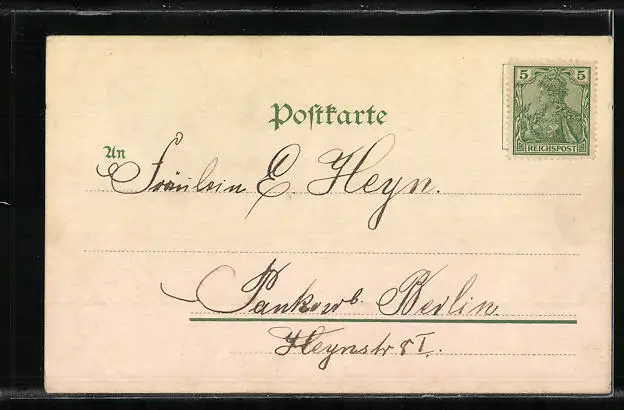 5 5
REICHSPOST
Postkarte
An Fräulein E. Heyn.
Pankow b. Berlin.
Heynstr 8 I.